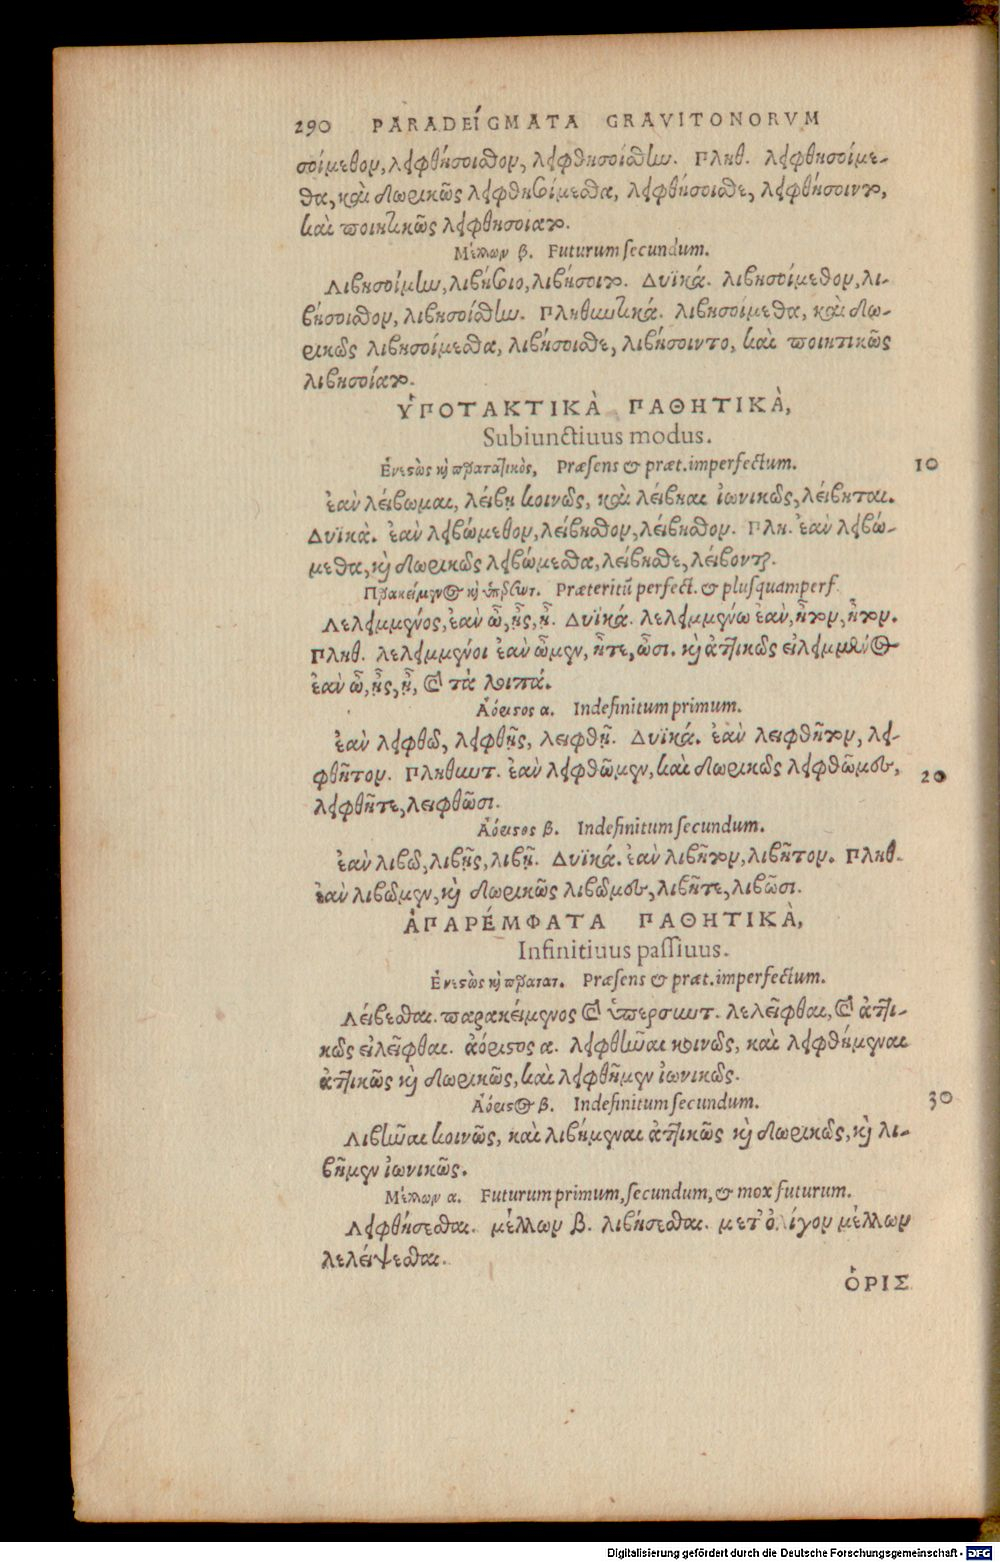 290 PARADEÍGMATA GRAVITONORVM
σοίμεθον, λειφθήσοισθον, λειφθησοίσθην. Πληθ. λειφθησοίμε-
θα, καὶ δωρικῶς λειφθησοίμεσθα, λειφθήσοισθε, λειφθήσοιντο,
καὶ ποιητικῶς λειφθησοίατο.
Μέλλων β. Futurum secundum.
Λιβησοίμην, λιβήσοιο, λιβήσοιτο. Δυϊκά. λιβησοίμεθον, λι-
βήσοισθον, λιβησοίσθην. Πληθυντικά. λιβησοίμεθα, καὶ δω-
ρικῶς λιβησοίμεσθα, λιβήσοισθε, λιβήσοιντο, καὶ ποιητικῶς
λιβησοίατο.
ὙΠΟΤΑΚΤΙΚᾺ ΠΑΘΗΤΙΚᾺ,
Subiunctiuus modus.
Ἐνεστὼς κὶ παρατατικὸς, Præsens & præt. imperfectum. 10
ἐαν λείβωμαι, λείβῃ κοινῶς, καὶ λείβηαι ἰωνικῶς, λείβηται.
Δυϊκὰ. ἐὰν λειβώμεθον, λείβησθον, λείβησθον. Πλη. ἐὰν λειβώ-
μεθα, κὶ δωρικῶς λειβώμεσθα, λείβησθε, λείβονται.
Παρακείμενος κὶ ὑπερσωτ. Præteritũ perfect. & plusquamperf.
Λελειμμένος, ἐὰν ὦ, ᾖς, ᾖ. Δυϊκά. λελειμμένω ἐὰν, ἦτον, ἦτον.
Πληθ. λελειμμένοι ἐὰν ὦμεν, ἦτε, ὦσι. κὶ ἀττικῶς εἰλειμμένος
ἐὰν ὦ, ᾖς, ᾖ, καὶ τὰ λοιπά.
Ἀόριστος α. Indefinitum primum.
ἐὰν λειφθῶ, λειφθῇς, λειφθῇ. Δυϊκά. ἐὰν λειφθῆτον, λει-
φθῆτον. Πληθυντ. ἐὰν λειφθῶμεν, καὶ δωρικῶς λειφθῶμες, 20
λειφθῆτε, λειφθῶσι.
Ἀόριστος β. Indefinitum secundum.
ἐὰν λιβῶ, λιβῇς, λιβῇ. Δυϊκά. ἐὰν λιβῆτον, λιβῆτον. Πληθ.
ἐὰν λιβῶμεν, κὶ δωρικῶς λιβῶμες, λιβῆτε, λιβῶσι.
ἈΠΑΡΈΜΦΑΤΑ ΠΑΘΗΤΙΚᾺ,
Infinitiuus passiuus.
Ἐνεστὼς κὶ παρατατ. Præsens & præt. imperfectum.
Λείβεσθαι. παρακείμενος καὶ ὑπερσυντ. λελεῖφθαι, καὶ ἀττι-
κῶς εἰλεῖφθαι. ἀόριστος α. λειφθῆναι κοινῶς, καὶ λειφθήμεναι
ἀττικῶς κὶ δωρικῶς, καὶ λειφθῆμεν ἰωνικῶς.
Ἀόριστος β. Indefinitum secundum. 30
Λιβῆναι κοινῶς, καὶ λιβήμεναι ἀττικῶς κὶ δωρικῶς, κὶ λι-
βῆμεν ἰωνικῶς.
Μέλλων α. Futurum primum, secundum, & mox futurum.
Λειφθήσεσθαι. μέλλων β. λιβήσεσθαι. μετ' ὀλίγον μέλλων
λελείψεσθαι.
ὉΡΙΣ
Digitalisierung gefördert durch die Deutsche Forschungsgemeinschaft - DFG